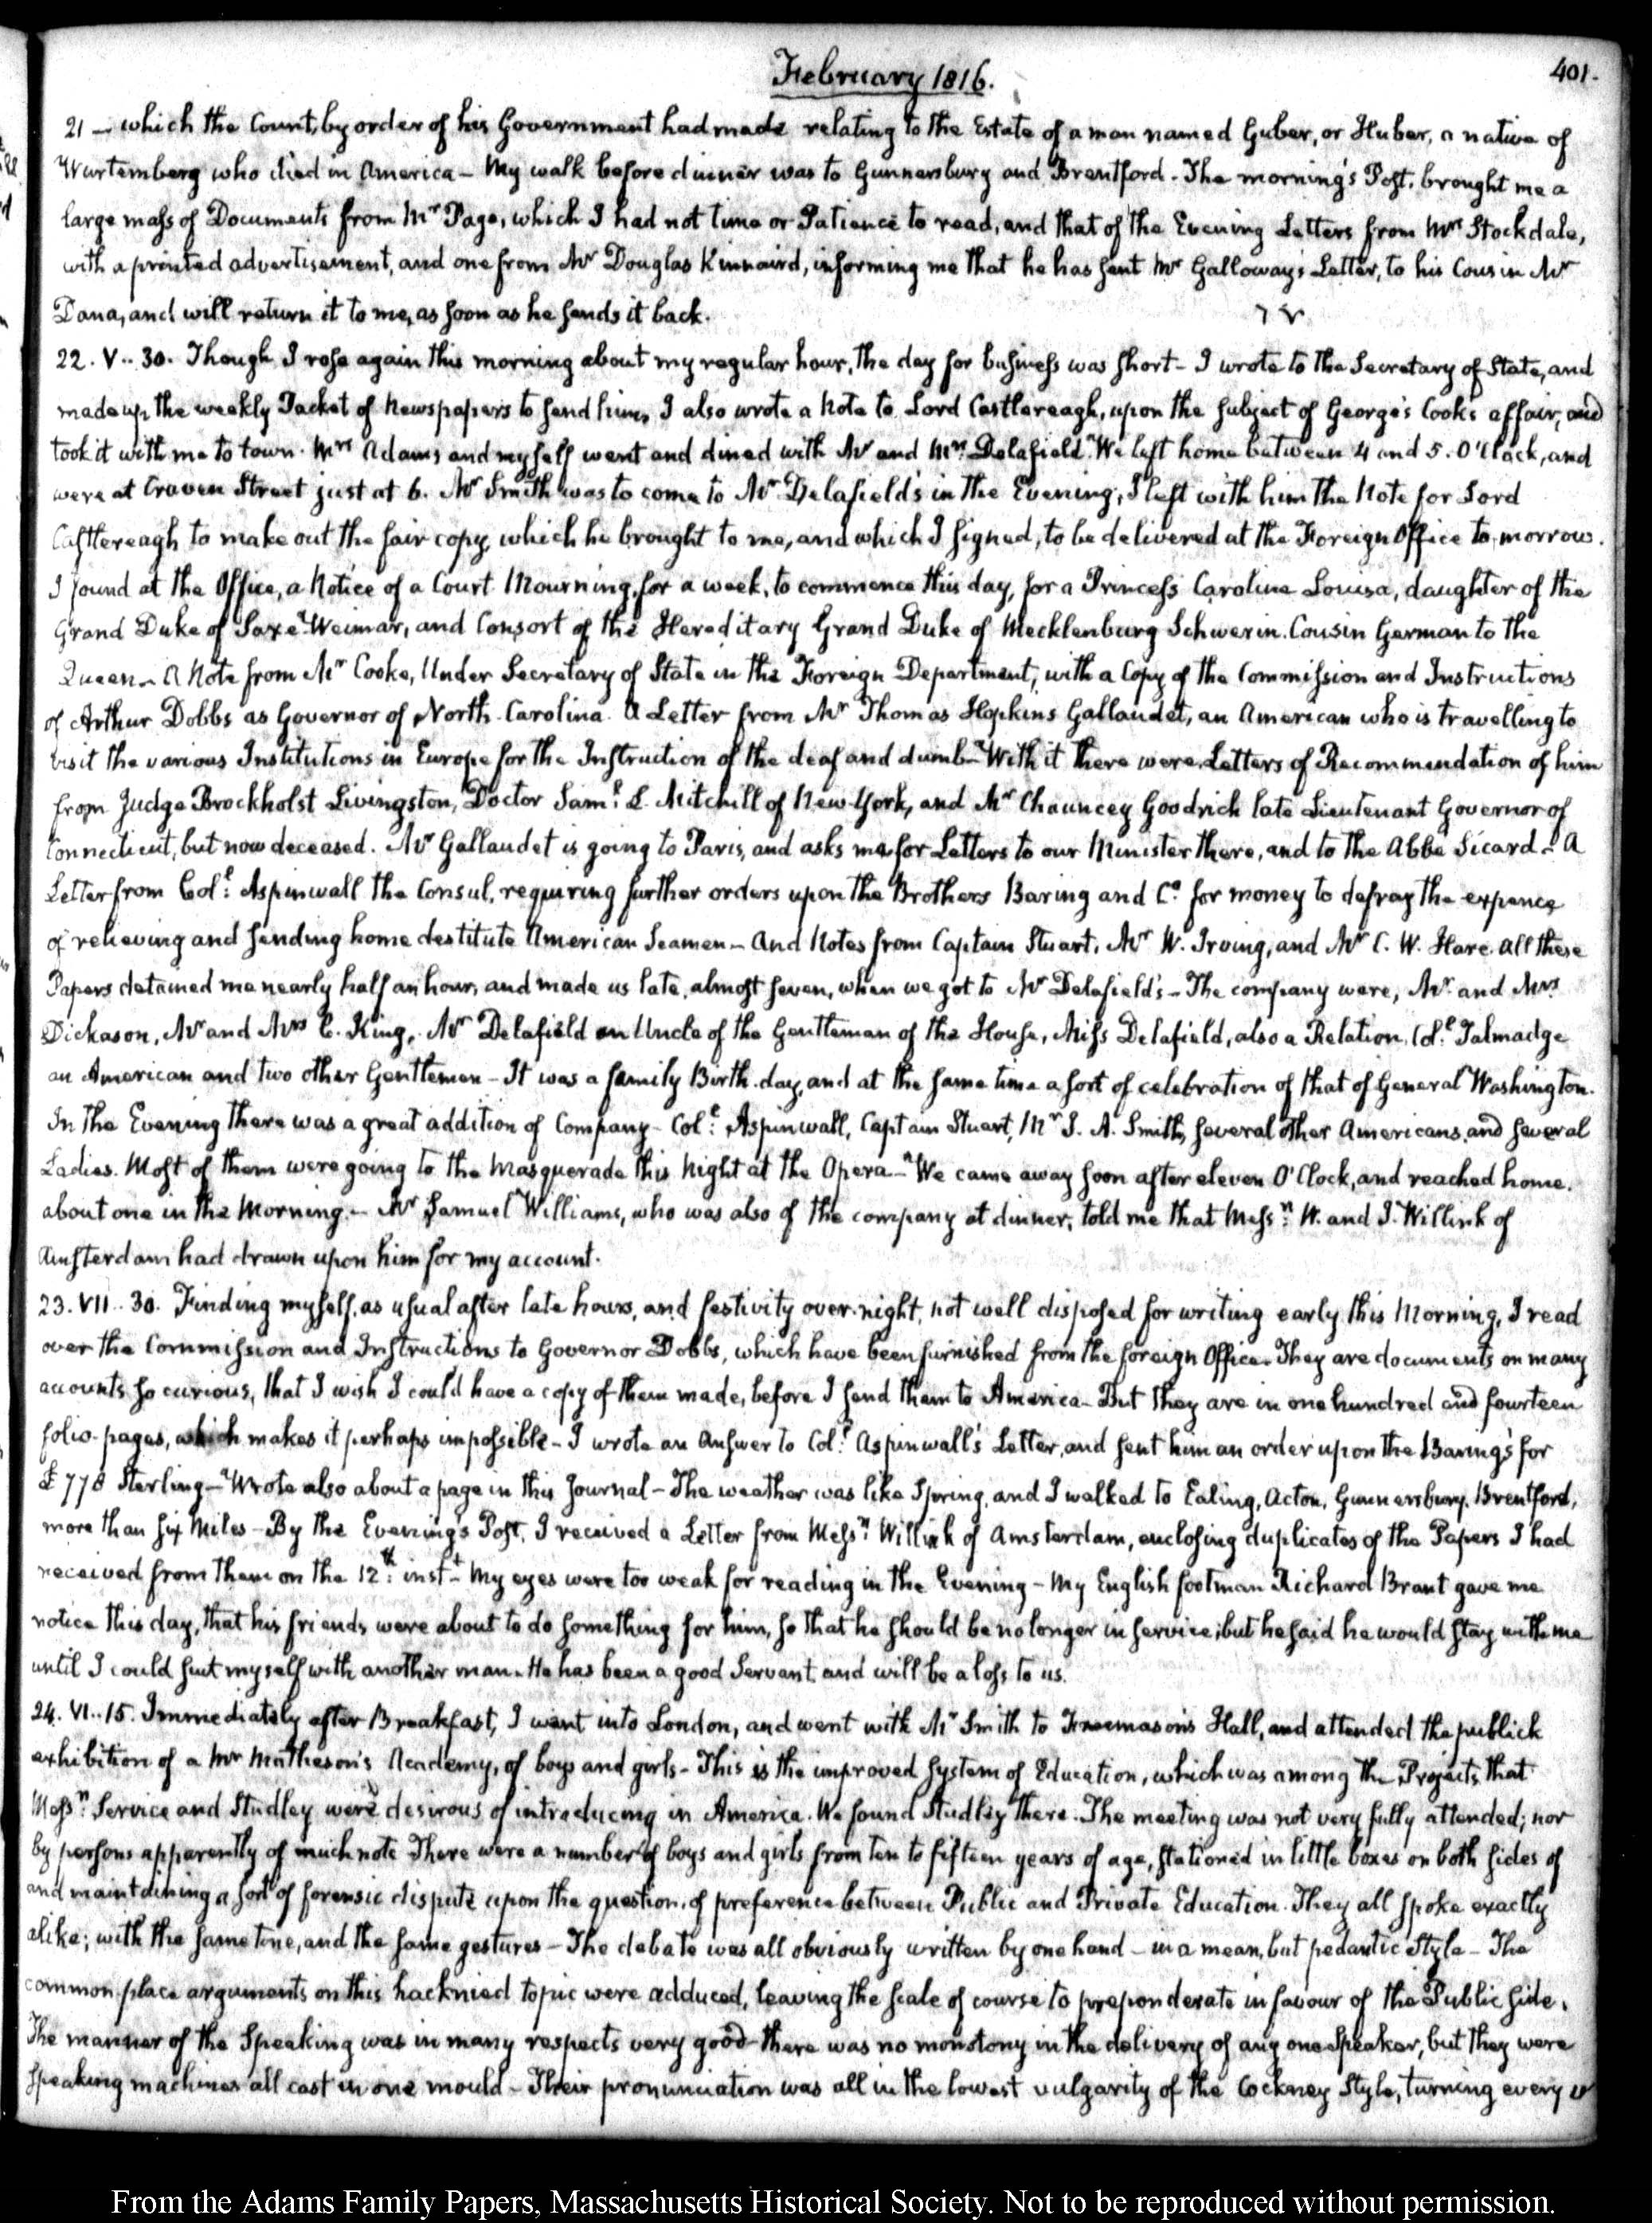 February 1816.
401.
21 — which the Count, by order of his Government had made relating to the Estate of a man named Guber, or Huber, a native of
Wurtemberg who died in America — My walk before dinner was to Gunnersbury and Brentford. The morning's Post, brought me a
large mass of Documents from Mr Page, which I had not time or Patience to read, and that of the Evening Letters from Mrs Stockdale,
with a printed advertisement, and one from Mr Douglas Kinnaird, informing me that he has sent Mr Galloway's Letter, to his Cousin Mr
Dana, and will return it to me, as soon as he sends it back.
22. V.. 30. Though I rose again this morning about my regular hour, the day for business was short — I wrote to the Secretary of State, and
made up the weekly Packet of Newspapers to send him, I also wrote a Note to Lord Castlereagh, upon the subject of George's Cook's affair, and
took it with me to town. Mrs Adams and myself went and dined with Mr and Mrs Delafield. We left home between 4 and 5. O'Clock, and
were at Craven Street just at 6. Mr Smith was to come to Mr Delafield's in the Evening; I left with him the Note for Lord
Castlereagh to make out the fair copy, which he brought to me, and which I signed, to be delivered at the Foreign Office to-morrow.
I found at the Office, a Notice of a Court Mourning, for a week, to commence this day, for a Princess Caroline Louisa, daughter of the
Grand Duke of Saxe-Weimar, and Consort of the Hereditary Grand Duke of Mecklenburg Schwerin. Cousin German to the
Queen — A Note from Mr Cooke, Under Secretary of State in the Foreign Department, with a Copy of the Commission and Instructions
of Arthur Dobbs as Governor of North-Carolina. A Letter from Mr Thomas Hopkins Gallaudet, an American who is travelling to
visit the various Institutions in Europe for the Instruction of the deaf and dumb — With it there were Letters of Recommendation of him
from Judge Brockholst Livingston, Doctor Saml L. Mitchill of New-York, and Mr Chauncey Goodrich late Lieutenant Governor of
Connecticut, but now deceased. Mr Gallaudet is going to Paris, and asks me for Letters to our Minister there, and to the Abbé Sicard — A
Letter from Coll Aspinwall the Consul, requiring further orders upon the Brothers Baring and Co for money to defray the expence
of relieving and sending home destitute American Seamen — And Notes from Captain Stuart, Mr W. Irving, and Mr C. W. Hare. All these
Papers detained me nearly half an hour, and made us late, almost seven, when we got to Mr Delafield's — The company were, Mr and Mrs
Dickason, Mr and Mrs C. King, Mr Delafield an Uncle of the Gentleman of the House, Miss Delafield, also a Relation, Coll Talmadge
an American and two other Gentlemen — It was a family Birth-day, and at the same time a sort of celebration of that of General Washington.
In the Evening there was a great addition of Company — Coll Aspinwall, Captain Stuart, Mr J. A. Smith, several other Americans, and several
Ladies. Most of them were going to the Masquerade this Night at the Opera — We came away soon after eleven O'Clock, and reached home.
about one in the Morning — Mr Samuel Williams, who was also of the company at dinner, told me that Messrs W. and J. Willink of
Amsterdam had drawn upon him for my account.
23. VII.. 30. Finding myself, as usual after late hours, and festivity over-night, not well disposed for writing early this Morning, I read
over the Commission and Instructions to Governor Dobbs, which have been furnished from the foreign Office. They are documents on many
accounts so curious, that I wish I could have a copy of them made, before I send them to America — But they are in one hundred and fourteen
folio-pages, which makes it perhaps impossible — I wrote an Answer to Coll Aspinwall's Letter, and sent him an order upon the Baring's for
£778 Sterling — Wrote also about a page in this Journal — The weather was like Spring, and I walked to Ealing, Acton, Gunnersbury, Brentford,
more than six Miles — By the Evening's Post, I received a Letter from Messrs Willink of Amsterdam, enclosing duplicates of the Papers I had
received from them on the 12th inst — My eyes were too weak for reading in the Evening — My English footman Richard Brant gave me
notice this day, that his friends were about to do something for him, so that he should be no longer in service; but he said he would stay with me
until I could suit myself with another man. He has been a good Servant and will be a loss to us.
24. VI.. 15. Immediately after Breakfast, I went into London, and went with Mr Smith to Freemason's Hall, and attended the publick
exhibition of a Mr Matheson's Academy, of boys and girls — This is the improved system of Education, which was among the Projects that
Messrs Service and Studley were desirous of introducing in America. We found Studley there. The meeting was not very fully attended; nor
by persons apparently of much note There were a number of boys and girls from ten to fifteen years of age, stationed in little boxes on both sides of
and maintaining a sort of forensic dispute upon the question, of preference between Public and Private Education. They all spoke exactly
alike; with the same tone, and the same gestures — The debate was all obviously written by one hand — in a mean, but pedantic style — The
common-place arguments on this hacknied topic were adduced, leaving the scale of course to preponderate in favour of the Public side.
The manner of the Speaking was in many respects very good there was no monotony in the delivery of any one speaker, but they were
speaking machines all cast in one mould — Their pronunciation was all in the lowest vulgarity of the Cockney Style, turning every v
From the Adams Family Papers, Massachusetts Historical Society. Not to be reproduced without permission.